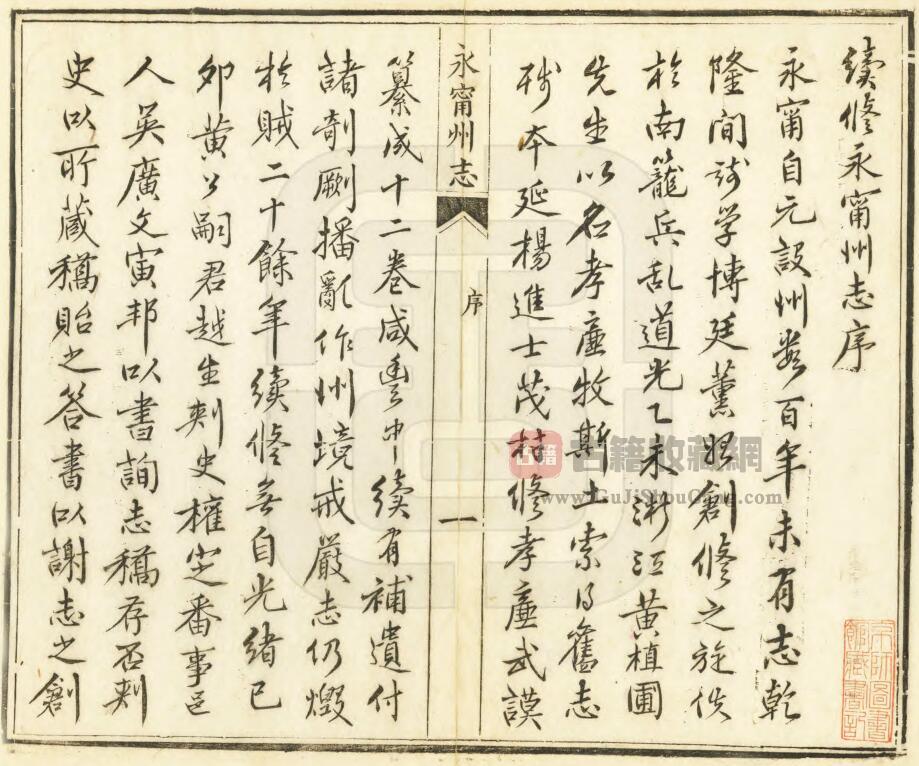 續修永甯州志序
永甯自元設州數百年未有志乾
隆間訪学博廷薰始創修之旋佚
於南籠兵乱道光乙未浙江黄植圃
先生以名孝廉牧斯土索得舊志
抄本延楊進士茂材修孝廉武謨
永甯州志
序
一
纂成十二卷咸豐中續有補遺付
諸剞劂播亂作州境戒嚴志仍燬
於賊二十餘年續修無自光緒己
卯黄公嗣君越生刺史權定番事邑
人吳廣文寅邦以書詢志稿存否刺
史以所藏稿貽之答書以謝志之創
古籍收藏網
www.GuJiShouCang.com